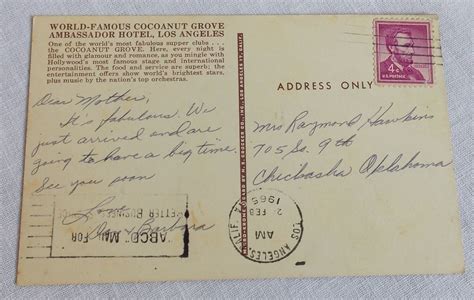 WORLD-FAMOUS COCOANUT GROVE
AMBASSADOR HOTEL, LOS ANGELES
One of the world's most fabulous supper clubs . . .
the COCOANUT GROVE. Here, every night is
filled with glamour and romance, as you mingle with
Hollywood's most famous stage and international
personalities. The food and service are superb; the
entertainment offers show world's brightest stars,
plus music by the nation's top orchestras.
Dear Mother,
It's fabulous. We
just arrived and are
going to have a big time.
See you soon
Love
Don & Barbara
4¢
U.S. POSTAGE
ADDRESS ONLY
Mrs Raymond Hawkins
705 So. 9th
Chickasha Oklahoma
LOS ANGELES, CALIF.
AM
2 FEB
1966
"ABCD" MAIL FOR
BETTER BUSINESS